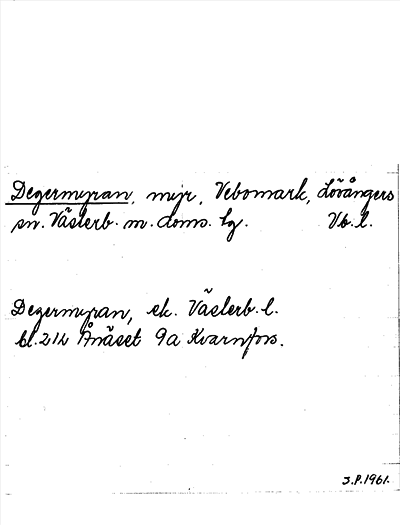 Degermyran, myr, Vebomark, Lövångers
sn. Västerb. m. doms. lg. Vb. l.
Degermyran, ek. Västerb. l.
bl. 21L Ånäset 9a Kvarnfors.
J.P. 1961.